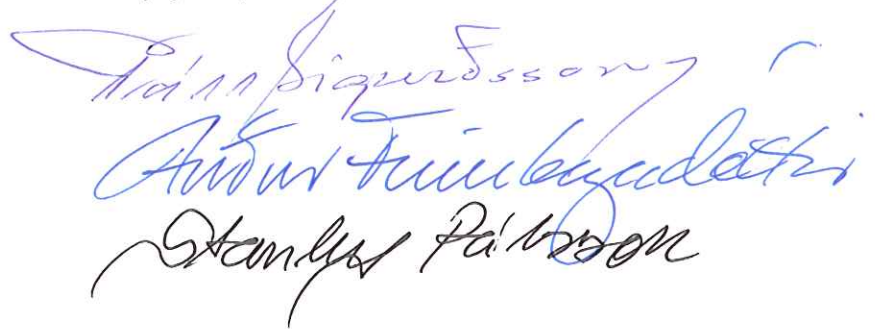 Páll Sigurðsson
Auður Finnbogadóttir
Stanley Pálsson